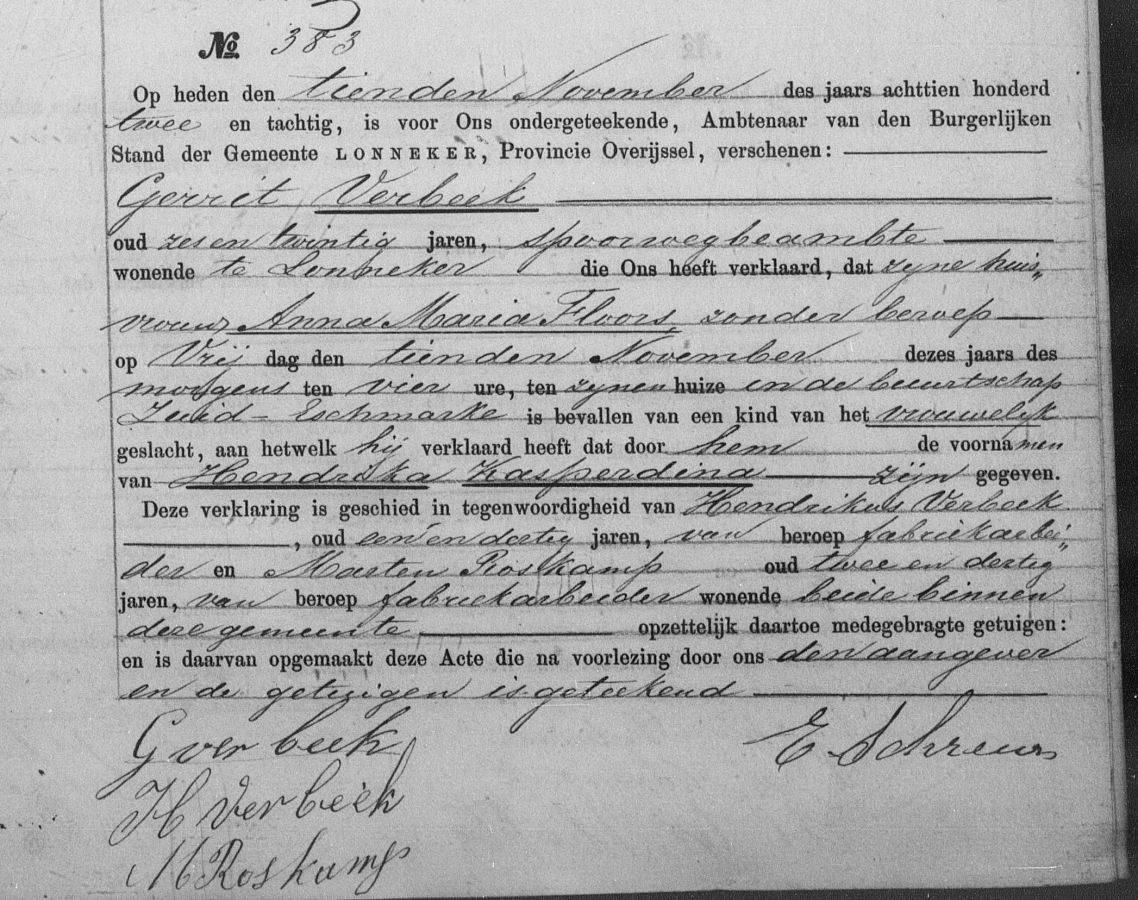 № 383
Op heden den tienden November des jaars achttien honderd
twee en tachtig, is voor Ons ondergeteekende, Ambtenaar van den Burgerlijken
Stand der Gemeente LONNEKER, Provincie Overijssel, verschenen:
Gerrit Verbeek
oud zes en twintig jaren, spoorwegbeambte
wonende te Lonneker die Ons heeft verklaard, dat zyne huis„
vrouw Anna Maria Floors, zonder beroep
op Vrij dag den tienden November dezes jaars des
morgens ten vier ure, ten zynen huize in de buurtschap
Zuid-Eschmarke is bevallen van een kind van het vrouwelyk
geslacht, aan hetwelk hij verklaard heeft dat door hem de voornamen
van Hendrika Kasperdina zijn gegeven.
Deze verklaring is geschied in tegenwoordigheid van Hendrikus Verbeek
, oud een en dertig jaren, van beroep fabriekarbei„
der en Marten Roskamp oud twee en dertig
jaren, van beroep fabriekarbeider wonende beide binnen
deze gemeente opzettelijk daartoe medegebragte getuigen:
en is daarvan opgemaakt deze Acte die na voorlezing door ons den aangever
en de getuigen is geteekend
G verbeek E. Schreurs
H Verbeek
M Roskamp